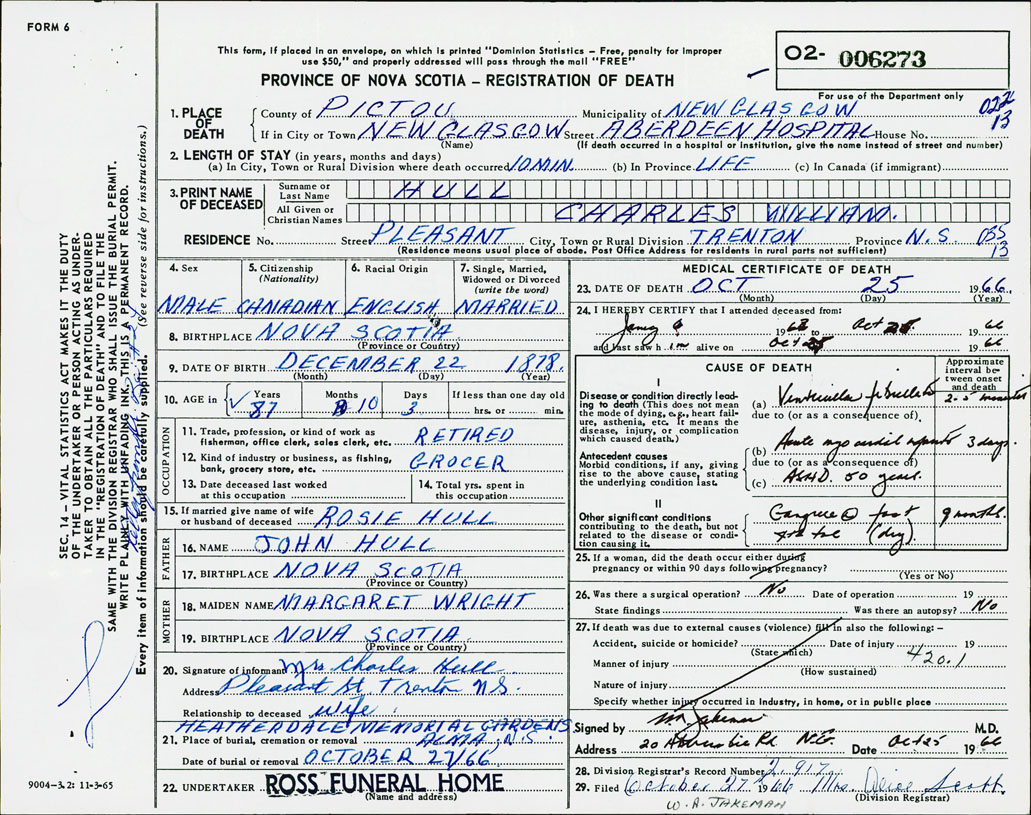 FORM 6
This form, if placed in an envelope, on which is printed "Dominion Statistics – Free, penalty for improper
use $50," and properly addressed will pass through the mail "FREE"
PROVINCE OF NOVA SCOTIA – REGISTRATION OF DEATH
O2- 006273
For use of the Department only
1. PLACE OF DEATH
County of PICTOU Municipality of NEW GLASGOW
If in City or Town NEW GLASGOW Street ABERDEEN HOSPITAL House No.
(Name) (If death occurred in a hospital or institution, give the name instead of street and number)
022
13
2. LENGTH OF STAY (in years, months and days)
(a) In City, Town or Rural Division where death occurred 10 MIN. (b) In Province LIFE (c) In Canada (if immigrant)
3. PRINT NAME OF DECEASED
Surname or Last Name HULL
All Given or Christian Names CHARLES WILLIAM.
RESIDENCE No. Street PLEASANT City, Town or Rural Division TRENTON Province N.S.
(Residence means usual place of abode. Post Office Address for residents in rural parts not sufficient)
13
4. Sex
MALE
5. Citizenship (Nationality)
CANADIAN
6. Racial Origin
ENGLISH
7. Single, Married, Widowed or Divorced (write the word)
MARRIED
8. BIRTHPLACE NOVA SCOTIA
(Province or Country)
9. DATE OF BIRTH DECEMBER 22 1878.
(Month) (Day) (Year)
10. AGE in Years Months Days If less than one day old
87 10 3 hrs. or min.
OCCUPATION
11. Trade, profession, or kind of work as
fisherman, office clerk, sales clerk, etc. RETIRED
12. Kind of industry or business, as fishing,
bank, grocery store, etc. GROCER
13. Date deceased last worked
at this occupation
14. Total yrs. spent in
this occupation
15. If married give name of wife
or husband of deceased ROSIE HULL
FATHER
16. NAME JOHN HULL
17. BIRTHPLACE NOVA SCOTIA
(Province or Country)
MOTHER
18. MAIDEN NAME MARGARET WRIGHT
19. BIRTHPLACE NOVA SCOTIA.
(Province or Country)
20. Signature of informant Mrs Charles Hull
Address Pleasant St. Trenton N.S.
Relationship to deceased wife.
HEATHERDALE MEMORIAL GARDENS
21. Place of burial, cremation or removal ALMA N.S.
Date of burial or removal OCTOBER 27/66
22. UNDERTAKER ROSS FUNERAL HOME
(Name and address)
MEDICAL CERTIFICATE OF DEATH
23. DATE OF DEATH OCT 25 1966.
(Month) (Day) (Year)
24. I HEREBY CERTIFY that I attended deceased from:
to Oct 1966
and last saw h im alive on Oct 1966
CAUSE OF DEATH
Approximate interval between onset and death
I
Disease or condition directly leading to death (This does not mean
the mode of dying, e.g., heart failure, asthenia, etc. It means the
disease, injury, or complication
which caused death.)
(a) Ventricular
due to (or as a consequence of)
(b) Acute 3 days.
Antecedent causes
Morbid conditions, if any, giving
rise to the above cause, stating
the underlying condition last.
due to (or as a consequence of)
(c) ASHD. years.
II
Other significant conditions
contributing to the death, but not
related to the disease or condition causing it.
Gangrene foot 9 months.
(dry)
25. If a woman, did the death occur either during
pregnancy or within 90 days following pregnancy?
(Yes or No)
26. Was there a surgical operation? No Date of operation 19
State findings Was there an autopsy? No
27. If death was due to external causes (violence) fill in also the following: –
Accident, suicide or homicide? Date of injury 19
(State which) 420.1
Manner of injury
(How sustained)
Nature of injury
Specify whether injury occurred in industry, in home, or in public place
Signed by M.D.
Address 20 Rd. N.G. Date Oct 25 1966
28. Division Registrar's Record Number 2917
29. Filed October 27 1966 Mrs. Alice Scott
(Division Registrar)
W. A. JAKEMAN
SEC. 14 – VITAL STATISTICS ACT MAKES IT THE DUTY
OF THE UNDERTAKER OR PERSON ACTING AS UNDERTAKER TO OBTAIN ALL THE PARTICULARS REQUIRED
IN THE "REGISTRATION OF DEATH" AND TO FILE THE
SAME WITH THE DIVISION REGISTRAR WHO SHALL ISSUE THE BURIAL PERMIT.
WRITE PLAINLY WITH UNFADING INK. THIS IS A PERMANENT RECORD.
Every item of information should be carefully supplied. (See reverse side for instructions.)
9004–3.2: 11-3-65